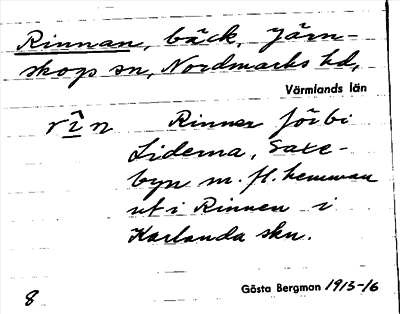 Rinnan, bäck, Järn-
skogs sn, Nordmarks hd,
Värmlands län
rîn Rinner förbi
Liderna, Saxe-
byn m. fl. hemman
ut i Rinnen i
Karlanda skn.
Gösta Bergman 1913-16
8